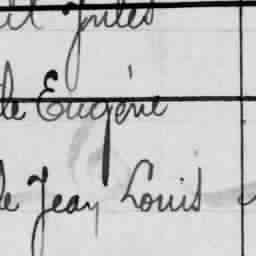 Jules
le Eugène
le Jean Louis